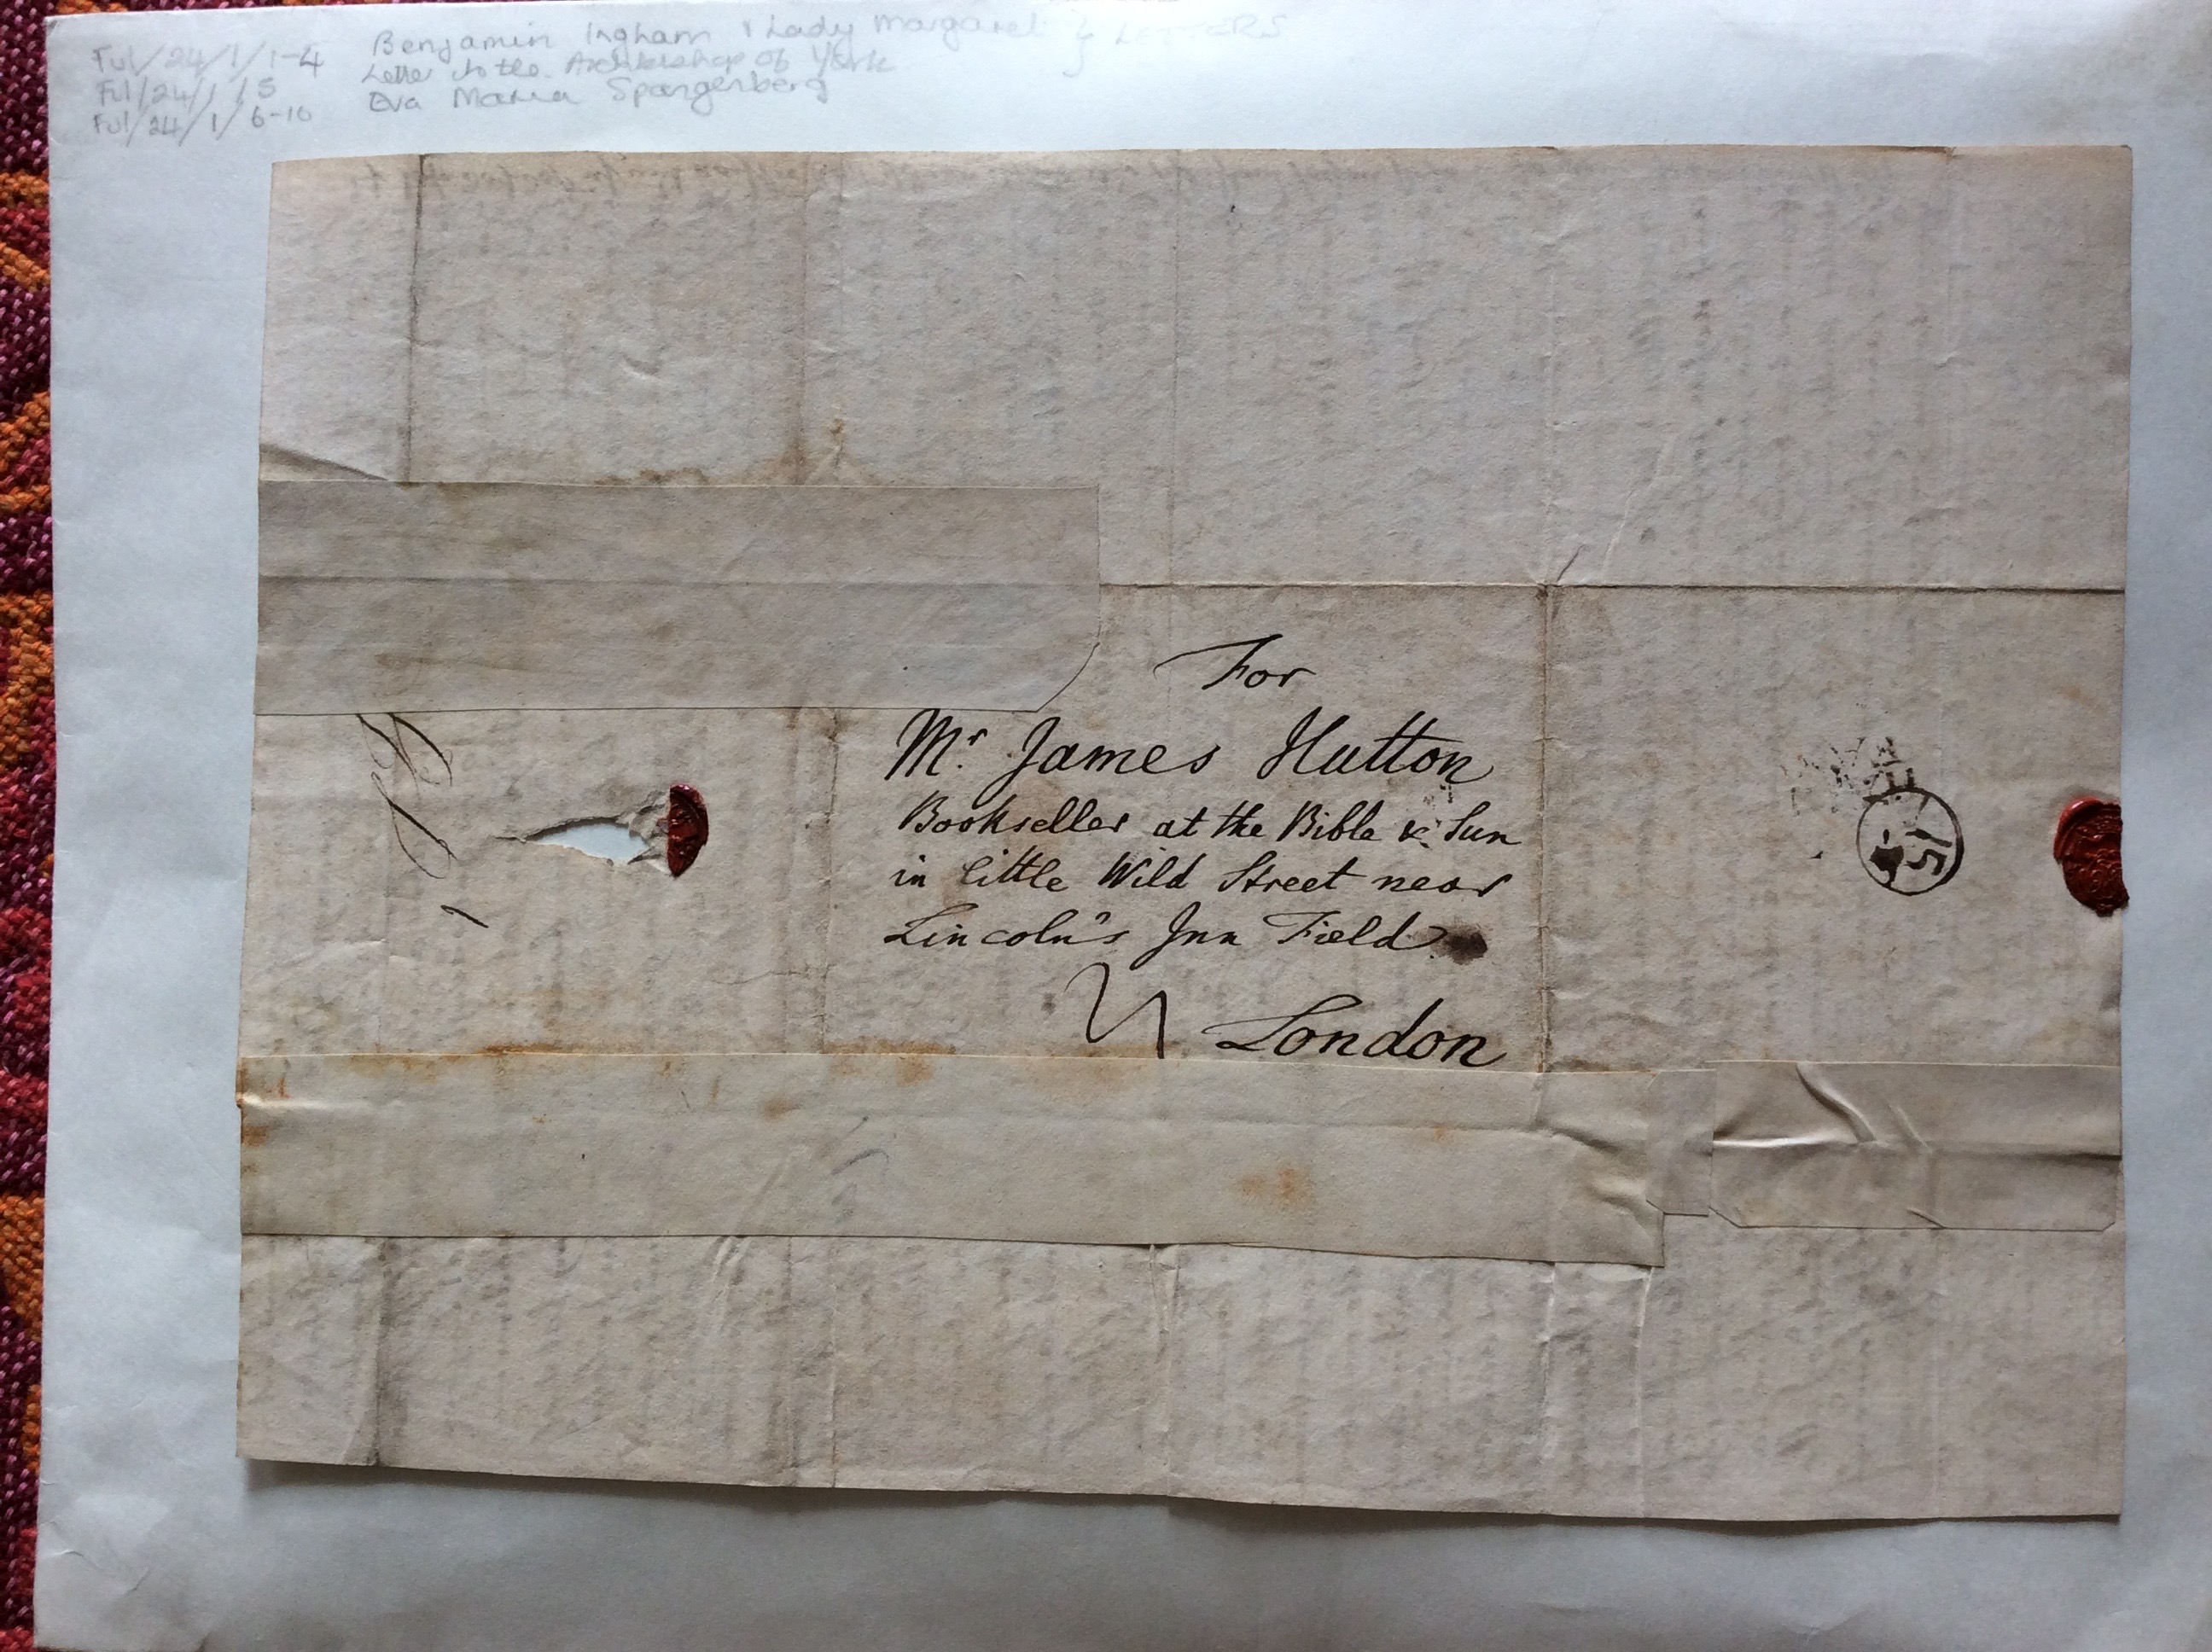 Ful/24/1/1-4 Benjamin Ingham & Lady Margaret } LETTERS
Ful/24/1/5 Letter to the Archbishop of York
Ful/24/1/6-10 Eva Maria Spangenberg
For
Mr. James Hutton
Bookseller at the Bible & Sun
in little Wild Street near
Lincoln's Inn Field
London
15